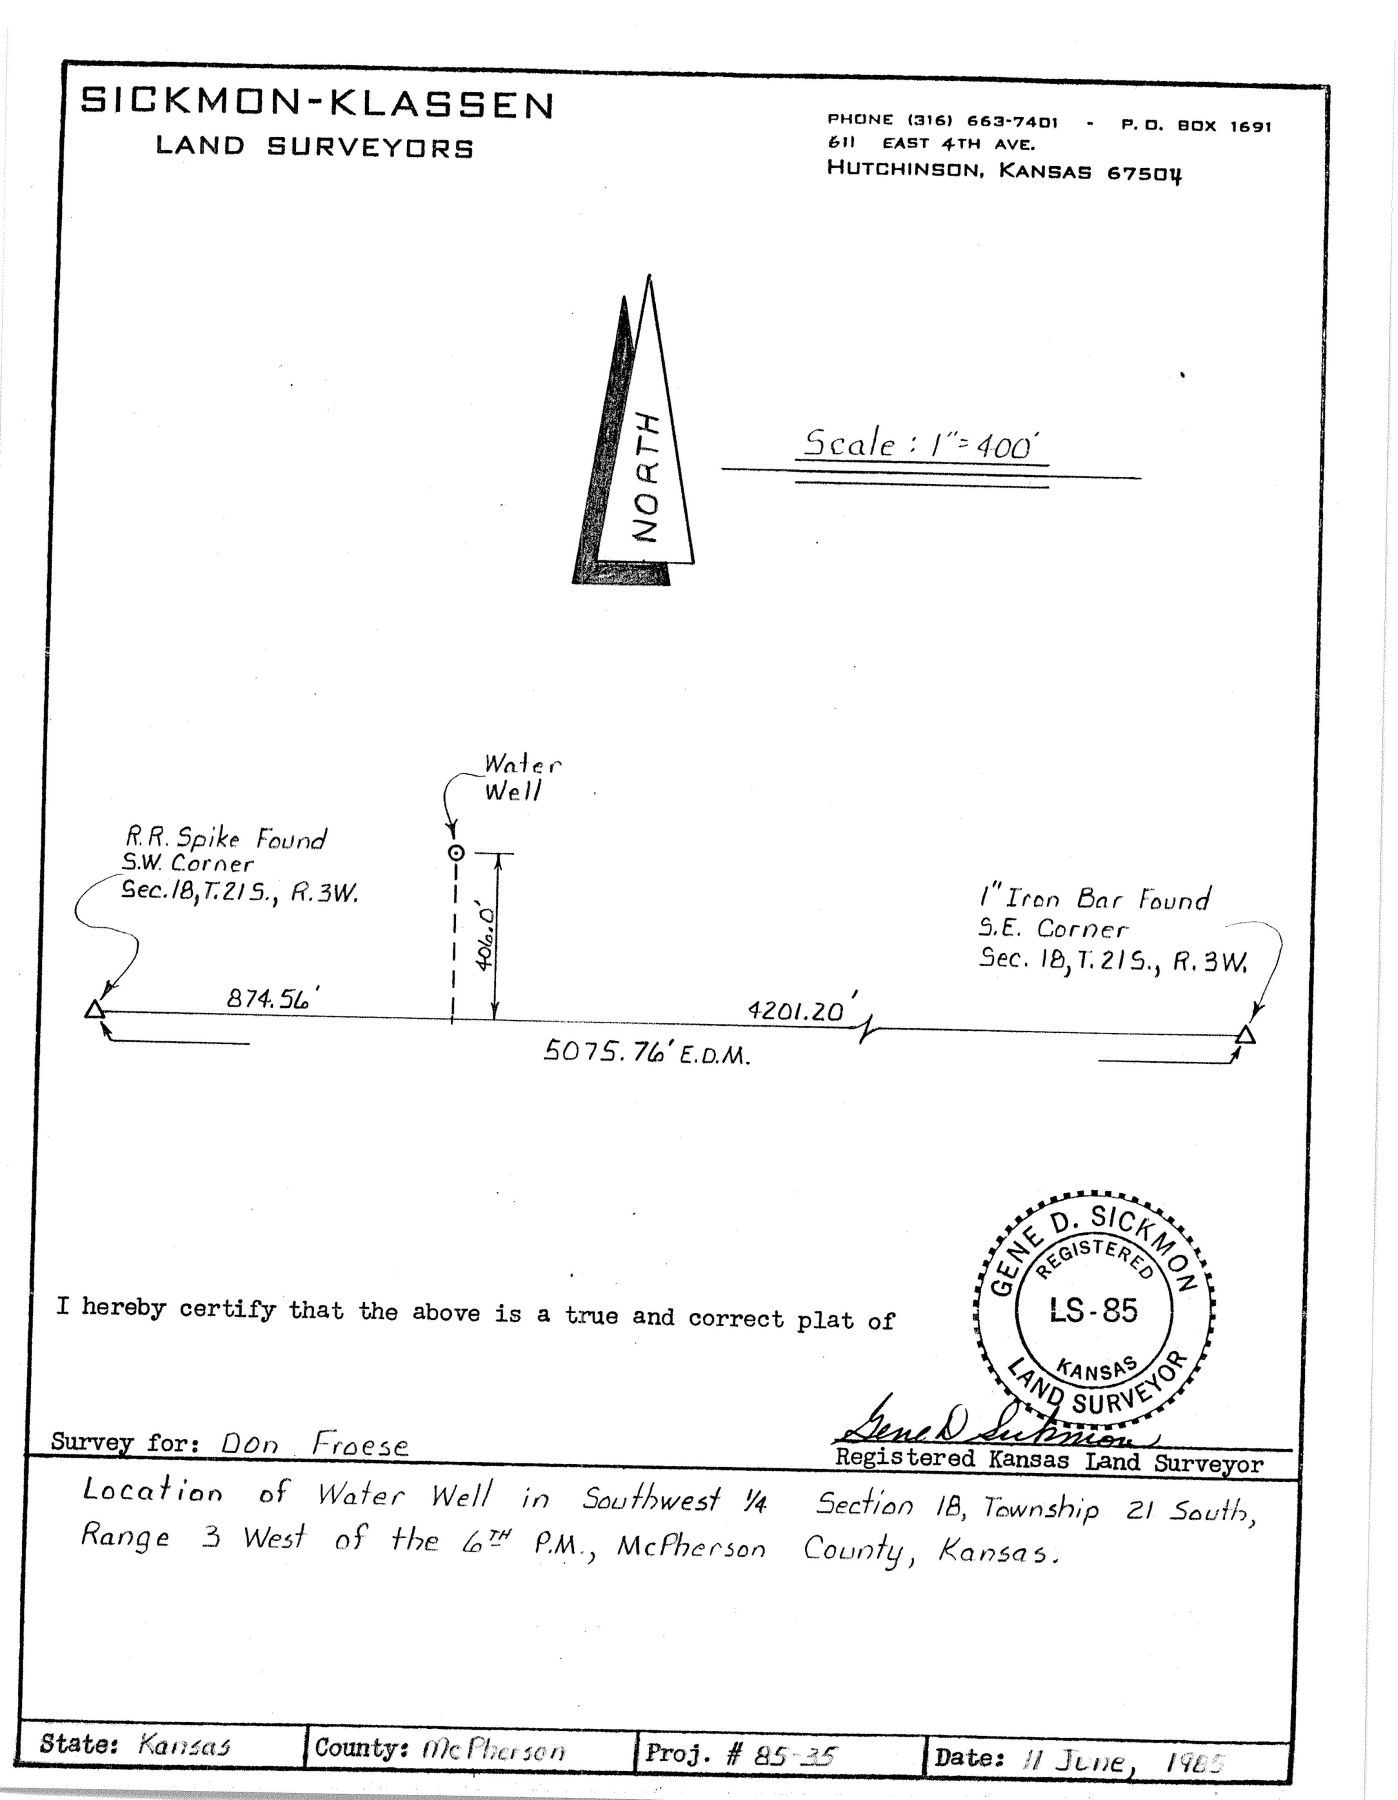 SICKMON-KLASSEN
LAND SURVEYORS
PHONE (316) 663-7401 - P.O. BOX 1691
611 EAST 4TH AVE.
HUTCHINSON, KANSAS 67504
NORTH
Scale: 1"=400'
Water
Well
R.R. Spike Found
S.W. Corner
Sec. 18, T. 21 S., R. 3W.
406.0'
1" Iron Bar Found
S.E. Corner
Sec. 18, T. 21 S., R. 3W.
874.56'
4201.20'
5075.76' E.D.M.
GENE D. SICKMON
REGISTERED
LS-85
KANSAS
LAND SURVEYOR
I hereby certify that the above is a true and correct plat of
Gene D Sickmon
Survey for: Don Froese
Registered Kansas Land Surveyor
Location of Water Well in Southwest 1/4 Section 18, Township 21 South,
Range 3 West of the 6TH P.M., McPherson County, Kansas.
State: Kansas
County: McPherson
Proj. # 85-35
Date: 11 June, 1985